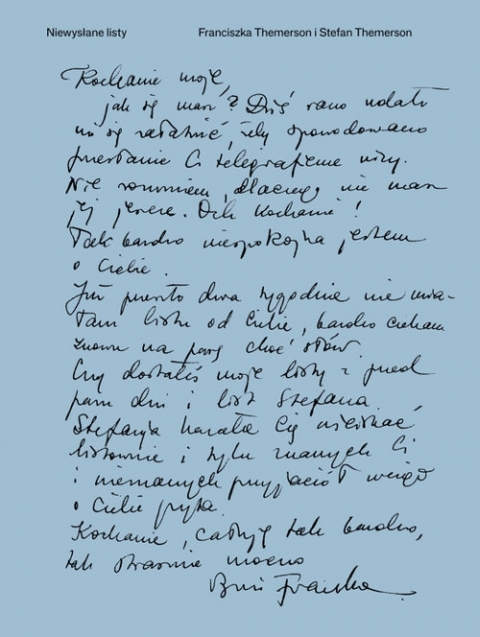 Niewysłane listy
Franciszka Themerson i Stefan Themerson
Kochanie moje,
jak się masz? Dziś rano udało
mi się załatwić, żeby spowodowano
przesłanie Ci telegrafem wizy.
Nie rozumiem, dlaczego nie masz
jej jeszcze. Och Kochanie!
Tak bardzo niespokojna jestem
o Ciebie.
Już przeszło dwa tygodnie nie mia-
łam listu od Ciebie, bardzo czekam
znowu na parę choć słów.
Czy dostałeś moje listy z przed
paru dni i list Stefana
Stefania kazała Cię uściskać
listownie i tylu znanych Ci
i nieznanych przyjaciół wciąż
o Ciebie pyta.
Kochanie, całuję tak bardzo,
tak strasznie mocno
Franka